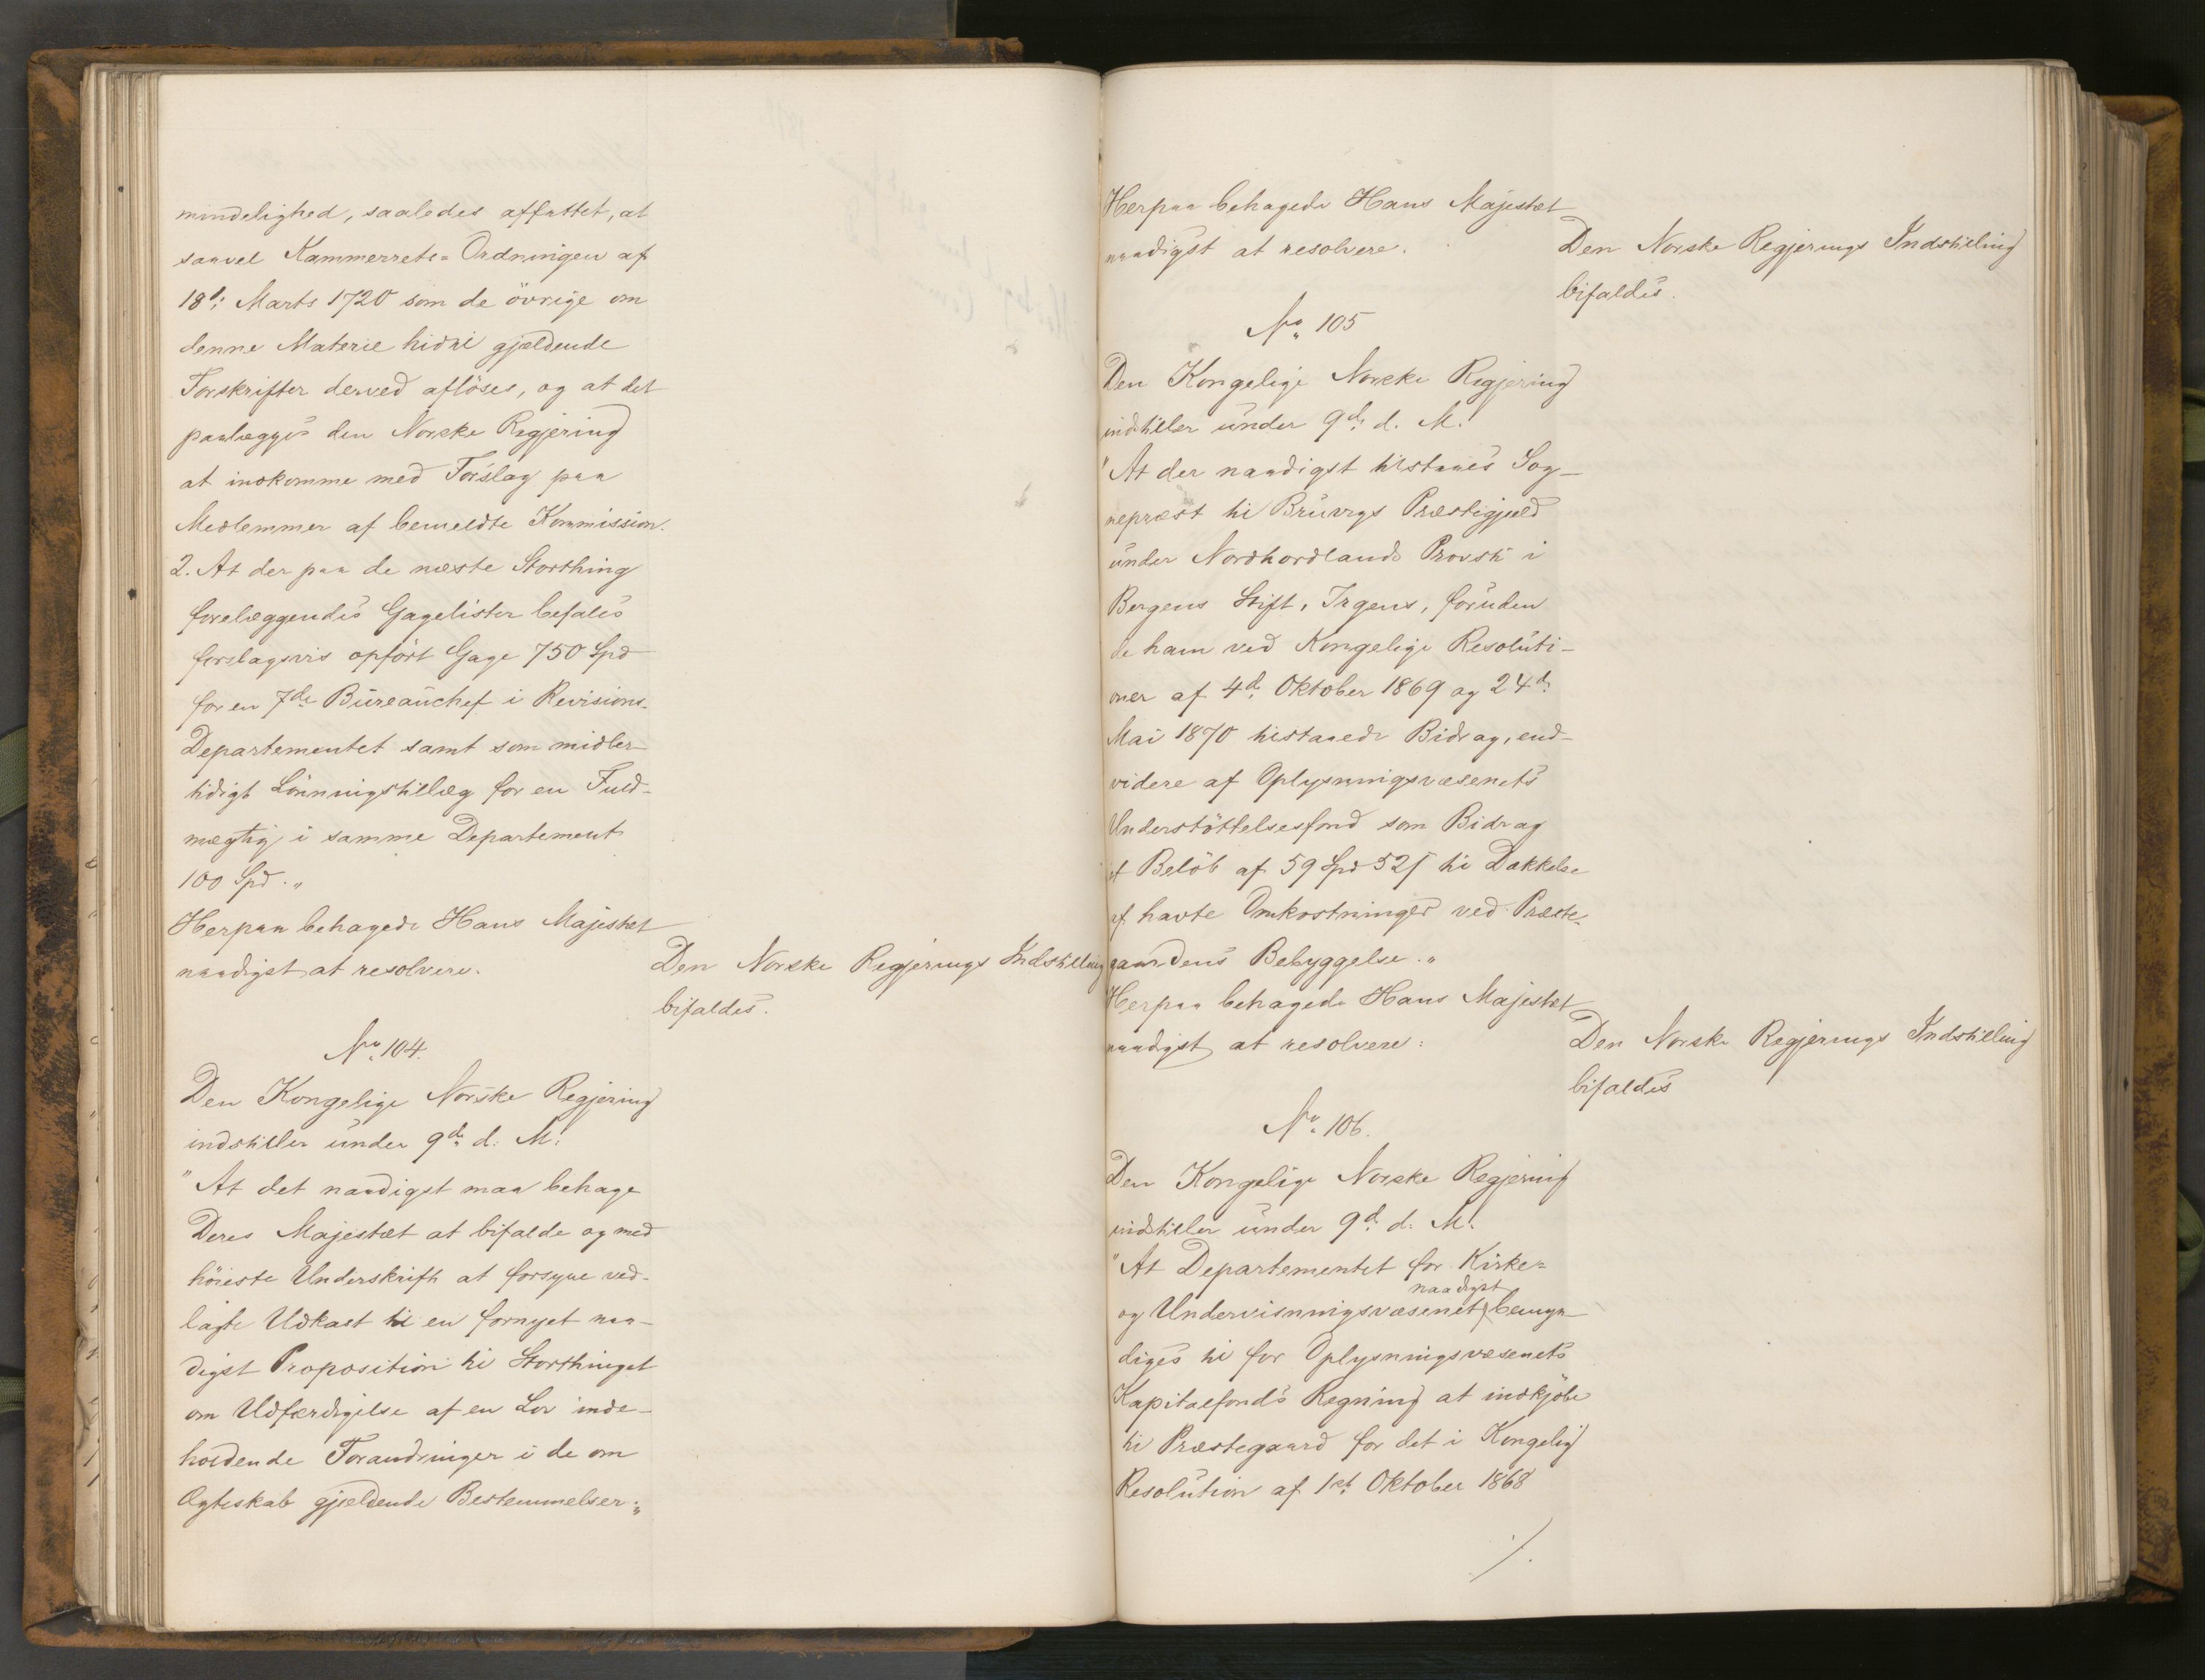 mindelighed, saaledes affattet, at
saavel Kammerrets-Ordningen af
18de Marts 1720 som de övrige om
denne Materie hidtil gjældende
Forskrifter derved aflöses, og at det
paalægges den Norske Regjering
at indkomme med Forslag paa
Medlemmer af bemeldte Kommission.
2. At der paa de næste Storthing
forelæggendes Gagelister befales
forslagsvis opført Gage 750 Spd
for en 7de Büreauchef i Revisions-
Departementet samt som midler-
tidigt Lönningstillæg for en Fuld-
mægtig i samme Departement
100 Spd."
Herpaa behagede Hans Majestet
naadigst at resolvere.
Den Norske Regjerings Indstilling
bifaldes.
No 104.
Den Kongelige Norske Regjering
indstiller under 9de d. M:
"At det naadigst maa behage
Deres Majestæt at bifalde og med
höieste Underskrift at forsyne ved-
lagte Udkast til en fornyet naa-
digst Proposition til Storthinget
om Udfærdigelse af en Lov inde-
holdende Forandringer i de om
Ægteskab gjældende Bestemmelser."
Herpaa behagede Hans Majestet
naadigst at resolvere.
Den Norske Regjerings Indstilling
bifaldes.
No 105
Den Kongelige Norske Regjering
indstiller under 9de d. M.
"At der naadigst tilstaaes Sog-
nepræst til Bruviks Præstegjeld
under Nordhordlands Provsti i
Bergens Stift, Irgens, foruden
de ham ved Kongelige Resoluti-
oner af 4de Oktober 1869 og 24de
Mai 1870 tilstaaede Bidrag, end-
videre af Oplysningsvæsenets
Understöttelsesfond som Bidrag
et Belöb af 59 Spd 52 s til Dækkelse
af havte Omkostninger ved Præste-
gaardens Bebyggelse."
Herpaa behagede Hans Majestet
naadigst at resolvere:
Den Norske Regjerings Indstilling
bifaldes
No 106.
Den Kongelige Norske Regjering
indstiller under 9de d. M:
"At Departementet for Kirke-
og Undervisningsvæsenet naadigst bemyn-
diges til for Oplysningsvæsenets
Kapitalfonds Regning at indkjöbe
til Præstegaard for det i Kongelig
Resolution af 1ste Oktober 1868
./.